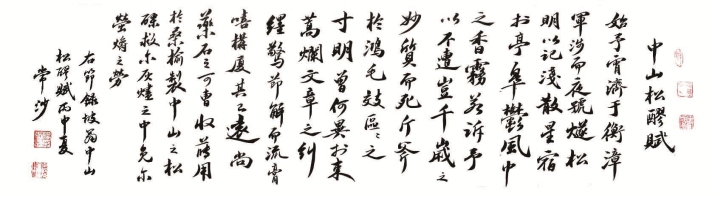 中山松醪賦
始予宵濟于衡漳
軍涉而夜號燧松
明以記淺散星宿
於亭皐鬱風中
之香霧若訴予
以不遭豈千歲之
妙質而死斤斧
於鴻毛效區々之
寸明曾何異於束
蒿爛文章之糾
纏驚節解而流膏
嘻構廈其已遠尚
藥石之可曹收薄用
於桑榆製中山之松
醪救尔灰燼之中免尔
螢爝之勞
右節錄坡翁中山
松醪賦丙申夏
常沙